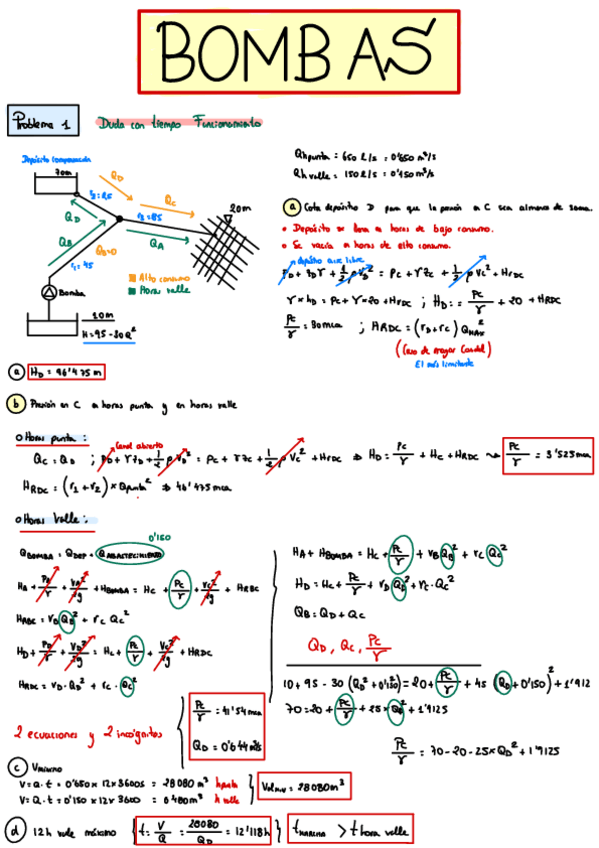 BOMBAS
Problema 1
Duda con tiempo Funcionamiento
Depósito compensación
70m
Q_D
Q_C
20m
r2=25
r3=85
Q_D
Q_A
Q_B
Q_B=0
r1=45
Alto consumo
Horas valle
Bomba
10m
H=95-30Q²
Qhpunta = 650 l/s = 0'650 m³/s
Qhvalle = 150 l/s = 0'150 m³/s
a Cota depósito D para que la presión a C sea al menos de 30mca.
• Depósito se llena a horas de bajo consumo.
• Se vacía a horas de alto consumo.
depósito aire libre
P_D + z_Dγ + 1/2 ρV_D² = Pc + γzc + 1/2 ρVc² + Hrdc
γ×h_D = Pc + γ×20 + H_RDC ; H_D = Pc/γ + 20 + H_RDC
Pc/γ = 30mca ; H_RDC = (r_D+r_C) Q_MAX²
(Caso de mayor Caudal)
El más limitante
a H_D = 96'475m
b Presión en C a horas punta y en horas valle
Horas punta:
Canal abierto
Q_C = Q_D ; P_D + γz_D + 1/2 ρV_D² = Pc + γzc + 1/2 ρVc² + Hrdc ⇒ H_D = Pc/γ + Hc + H_RDC
Pc/γ = 3'525mca
H_RDC = (r1+r2) × Qpunta² ⇒ 46'475 mca
Horas Valle:
0'150
Q_BOMBA = Q_DEP + Q_ABASTECIMIENTO
H_A + P_A/γ + V_A²/2g + H_BOMBA = Hc + Pc/γ + Vc²/2g + H_RBC
H_RBC = r_B Q_B² + r_C Q_C²
H_D + P_D/γ + V_D²/2g = Hc + Pc/γ + Vc²/2g + H_RDC
H_RDC = r_D · Q_D² + r_C · Q_C²
2 ecuaciones y 2 incógnitas
Pc/γ = 41'54mca
Q_D = 0'644 m³/s
H_A + H_BOMBA = Hc + Pc/γ + r_B Q_B² + r_C Q_C²
H_D = Hc + Pc/γ + r_D Q_D² + r_C · Q_C²
Q_B = Q_D + Q_C
Q_D, Q_C, Pc/γ
10 + 95 - 30 (Q_D² + 0'150²) = 20 + Pc/γ + 45 (Q_D + 0'150)² + 1'912
70 = 20 + Pc/γ + 25×Q_D² + 1'9125
Pc/γ = 70-20-25×Q_D² + 1'9125
c Vmáximo
V = Q·t = 0'650×12×3600s = 28080 m³ h punta
V = Q·t = 0'150×12×3600 = 6480 m³ h valle
Vol_MAX = 28080m³
d 12h valle máximo
t = V/Q = 28080/Q_D = 12'118h
t_MARCHA > t hora valle